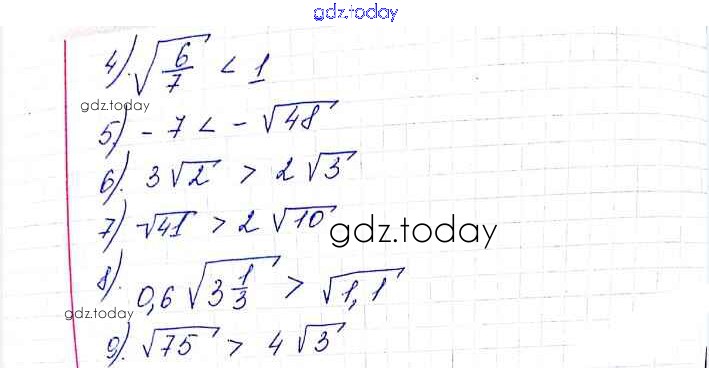 gdz.today
4). √(6/7) < 1
gdz.today
5) - 7 < - √48
6). 3√2 > 2√3
7) √41 > 2√10
gdz.today
8). 0,6 √(3 1/3) > √1,1
gdz.today
9). √75 > 4√3